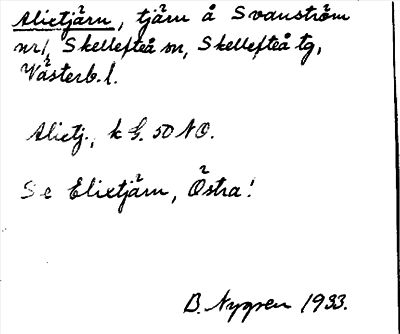 Alietjärn, tjärn å Svanström
nr1, Skellefteå sn, Skellefteå tg,
Västerb. l.
Alietj., k G. 50 NO.
Se Elietjärn, Östra!
B. Nygren 1933.